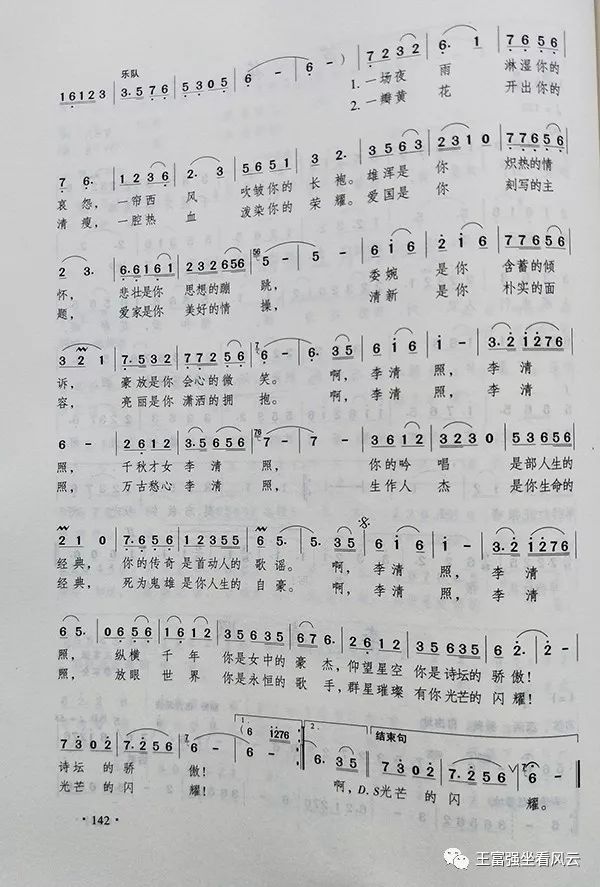 乐队
16123 | 3·576 | 5305 | 6 - | 6 - ) | 7232 | 6· 1 | 7656
1.一场夜 雨 淋湿你的
2.一瓣黄 花 开出你的
7 6· | 1236 | 2· 3 | 5651 | 3 2· | 3563 | 2310 | 77656
哀怨,一帘西 风 吹皱你的 长 袍。雄浑是 你 炽热的情
清瘦,一腔热 血 泼染你的 荣 耀。爱国是 你 刻写的主
2 3· | 66161 | 232656 | 5 - | 5 - | 6i6 | 2i6 | 77656
怀, 悲壮是你 思想的蹦 跳, 委婉 是你 含蓄的倾
题, 爱家是你 美好的情 操, 清新 是你 朴实的面
321 | 7·532 | 77256 | 6 - | 6· 35 | 6i6 | i6 35 | 3·2i276
诉, 豪放是你 会心的微 笑。 啊, 李清 照, 李 清
容, 亮丽是你 潇洒的拥 抱。 啊, 李清 照, 李 清
6 - | 2612 | 3·5656 | 7 - | 7 - | 3612 | 3230 | 533656
照, 千秋才女 李 清 照, 你的吟 唱 是部人生的
照, 万古愁心 李 清 照, 生作人 杰 是你生命的
210 | 7656 | 12355 | 65· | 5· 35 | 6i6 | i6 35 | 3·2i276
经典, 你的传奇 是首动人的 歌谣。 啊, 李清 照, 李 清
经典, 死为鬼雄 是你人生的 自豪。 啊, 李清 照, 李 清
65· | 0656 | 1612 | 35635 | 676· | 3535 | 35635 | 62· | 2· -
照, 纵横 千年 你是女中的 豪 杰,仰望星空 你是诗坛的 骄傲!
照, 放眼 世界 你是永恒的 歌 手,群星璀璨 有你光芒的 闪耀!
1. 2. 结束句
7302 | 7·256 | 6 - | (6 i276) | 6· 35 | 7302 | 7·256 | 6 -
诗坛 的 骄 傲! 啊, D.S光芒 的 闪 耀。
光芒 的 闪 耀!
·142·
王富强坐看风云